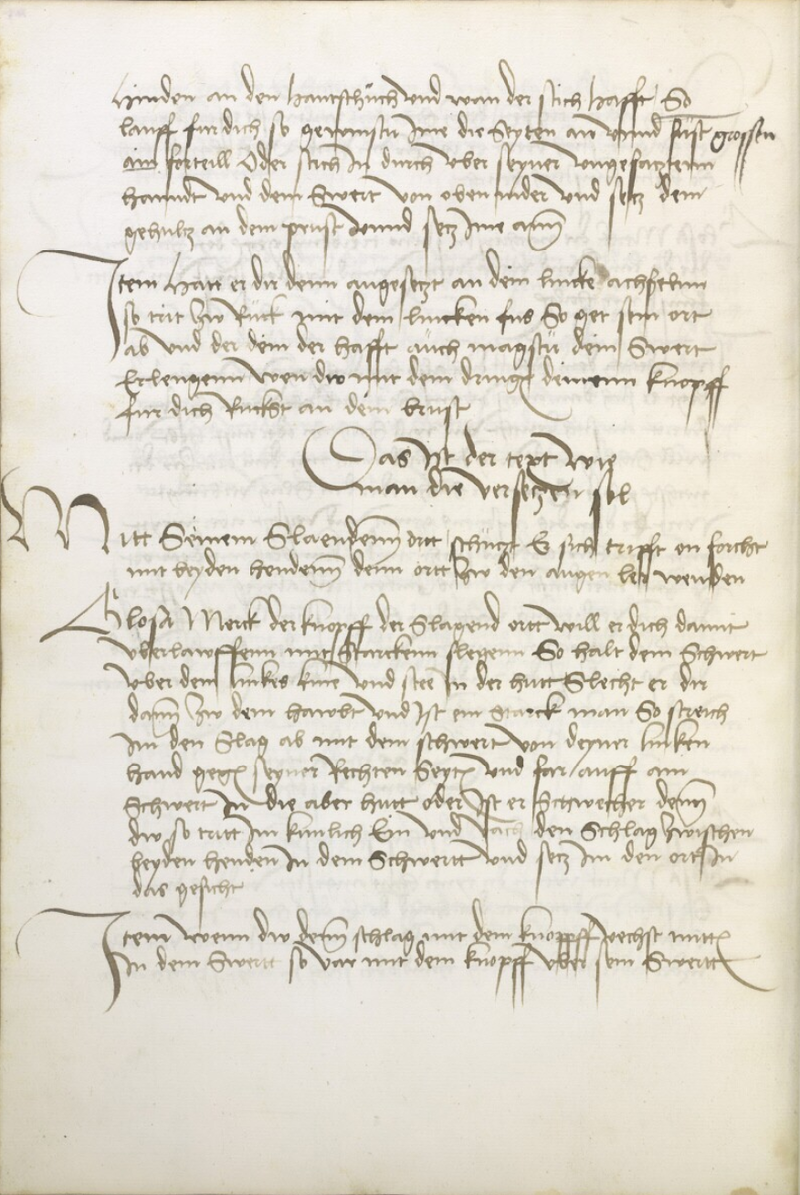 Hinden an den hantschuch und wan der stich hafft So
lauff fur dich so gewinstu Ime die Seyten an unnd sust grossen
ain forteill Oder stich in durch uber seyner vorgesatztenn
hanndt und dem Swert von oben nider und setz dem
gehultz an dein prust unnd setz Ime ann
Item Hatt er dir denn angesetzt an dein lincke achselnn
so trit zw Ruck mit dem lincken fus So get sein ort
ab und der dein der hafft auch magstu dein Swert
Erlengenn wen dw mit dem dringst deinenn knopff
fur dich Ruckst an dein brust
Das ist der text wie
man die versetzen sol
Mitt Seinem Slaendenn ortt schutzt Er sich trifft on forcht
mit beyden hendenn denn ortt zw den augen ler wenden
Glosa Merck der knopff der Slagend ortt will er dich damit
uberlawffenn mit Starckenn slegenn So halt dein Schwert
uber dem linkes knie und stee In der hutt Slecht er dir
dann zw dem hawbt und Ist ein starck man So streich
Im den Slag ab mit dem schwert von deyner linken
hand gegen seyner Rechten Seyten und far auff am
Schwert In die aber hutt oder Ist er Schwecher denn
dw so tritt Im kunlich Ein und vach den Schlag zwischen
beyden henden In dem Schwertt und setz Im den ort In
das gesicht
Item wenn dw denn schlag mit dem knopff vechst mitten
In dem Swertt so var mit dem knopff uber sein Swertt